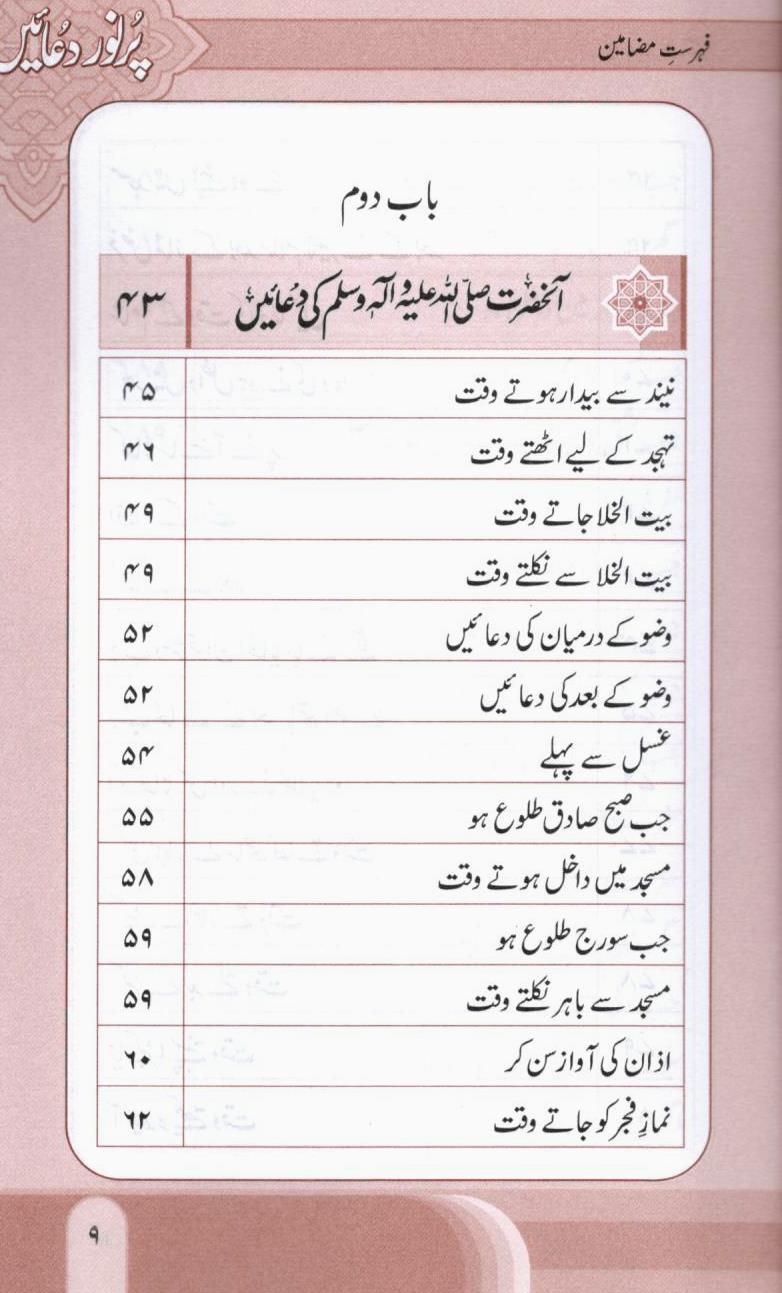 فہرستِ مضامین
پُرنور دعائیں
باب دوم
آنحضرت صلی اللہ علیہ وآلہ وسلم کی دُعائیں ۴۳
نیند سے بیدار ہوتے وقت ۴۵
تہجد کے لیے اٹھتے وقت ۴۶
بیت الخلا جاتے وقت ۴۹
بیت الخلا سے نکلتے وقت ۴۹
وضو کے درمیان کی دعائیں ۵۲
وضو کے بعد کی دعائیں ۵۲
غسل سے پہلے ۵۴
جب صبح صادق طلوع ہو ۵۵
مسجد میں داخل ہوتے وقت ۵۸
جب سورج طلوع ہو ۵۹
مسجد سے باہر نکلتے وقت ۵۹
اذان کی آواز سن کر ۶۰
نمازِ فجر کو جاتے وقت ۶۲
۹